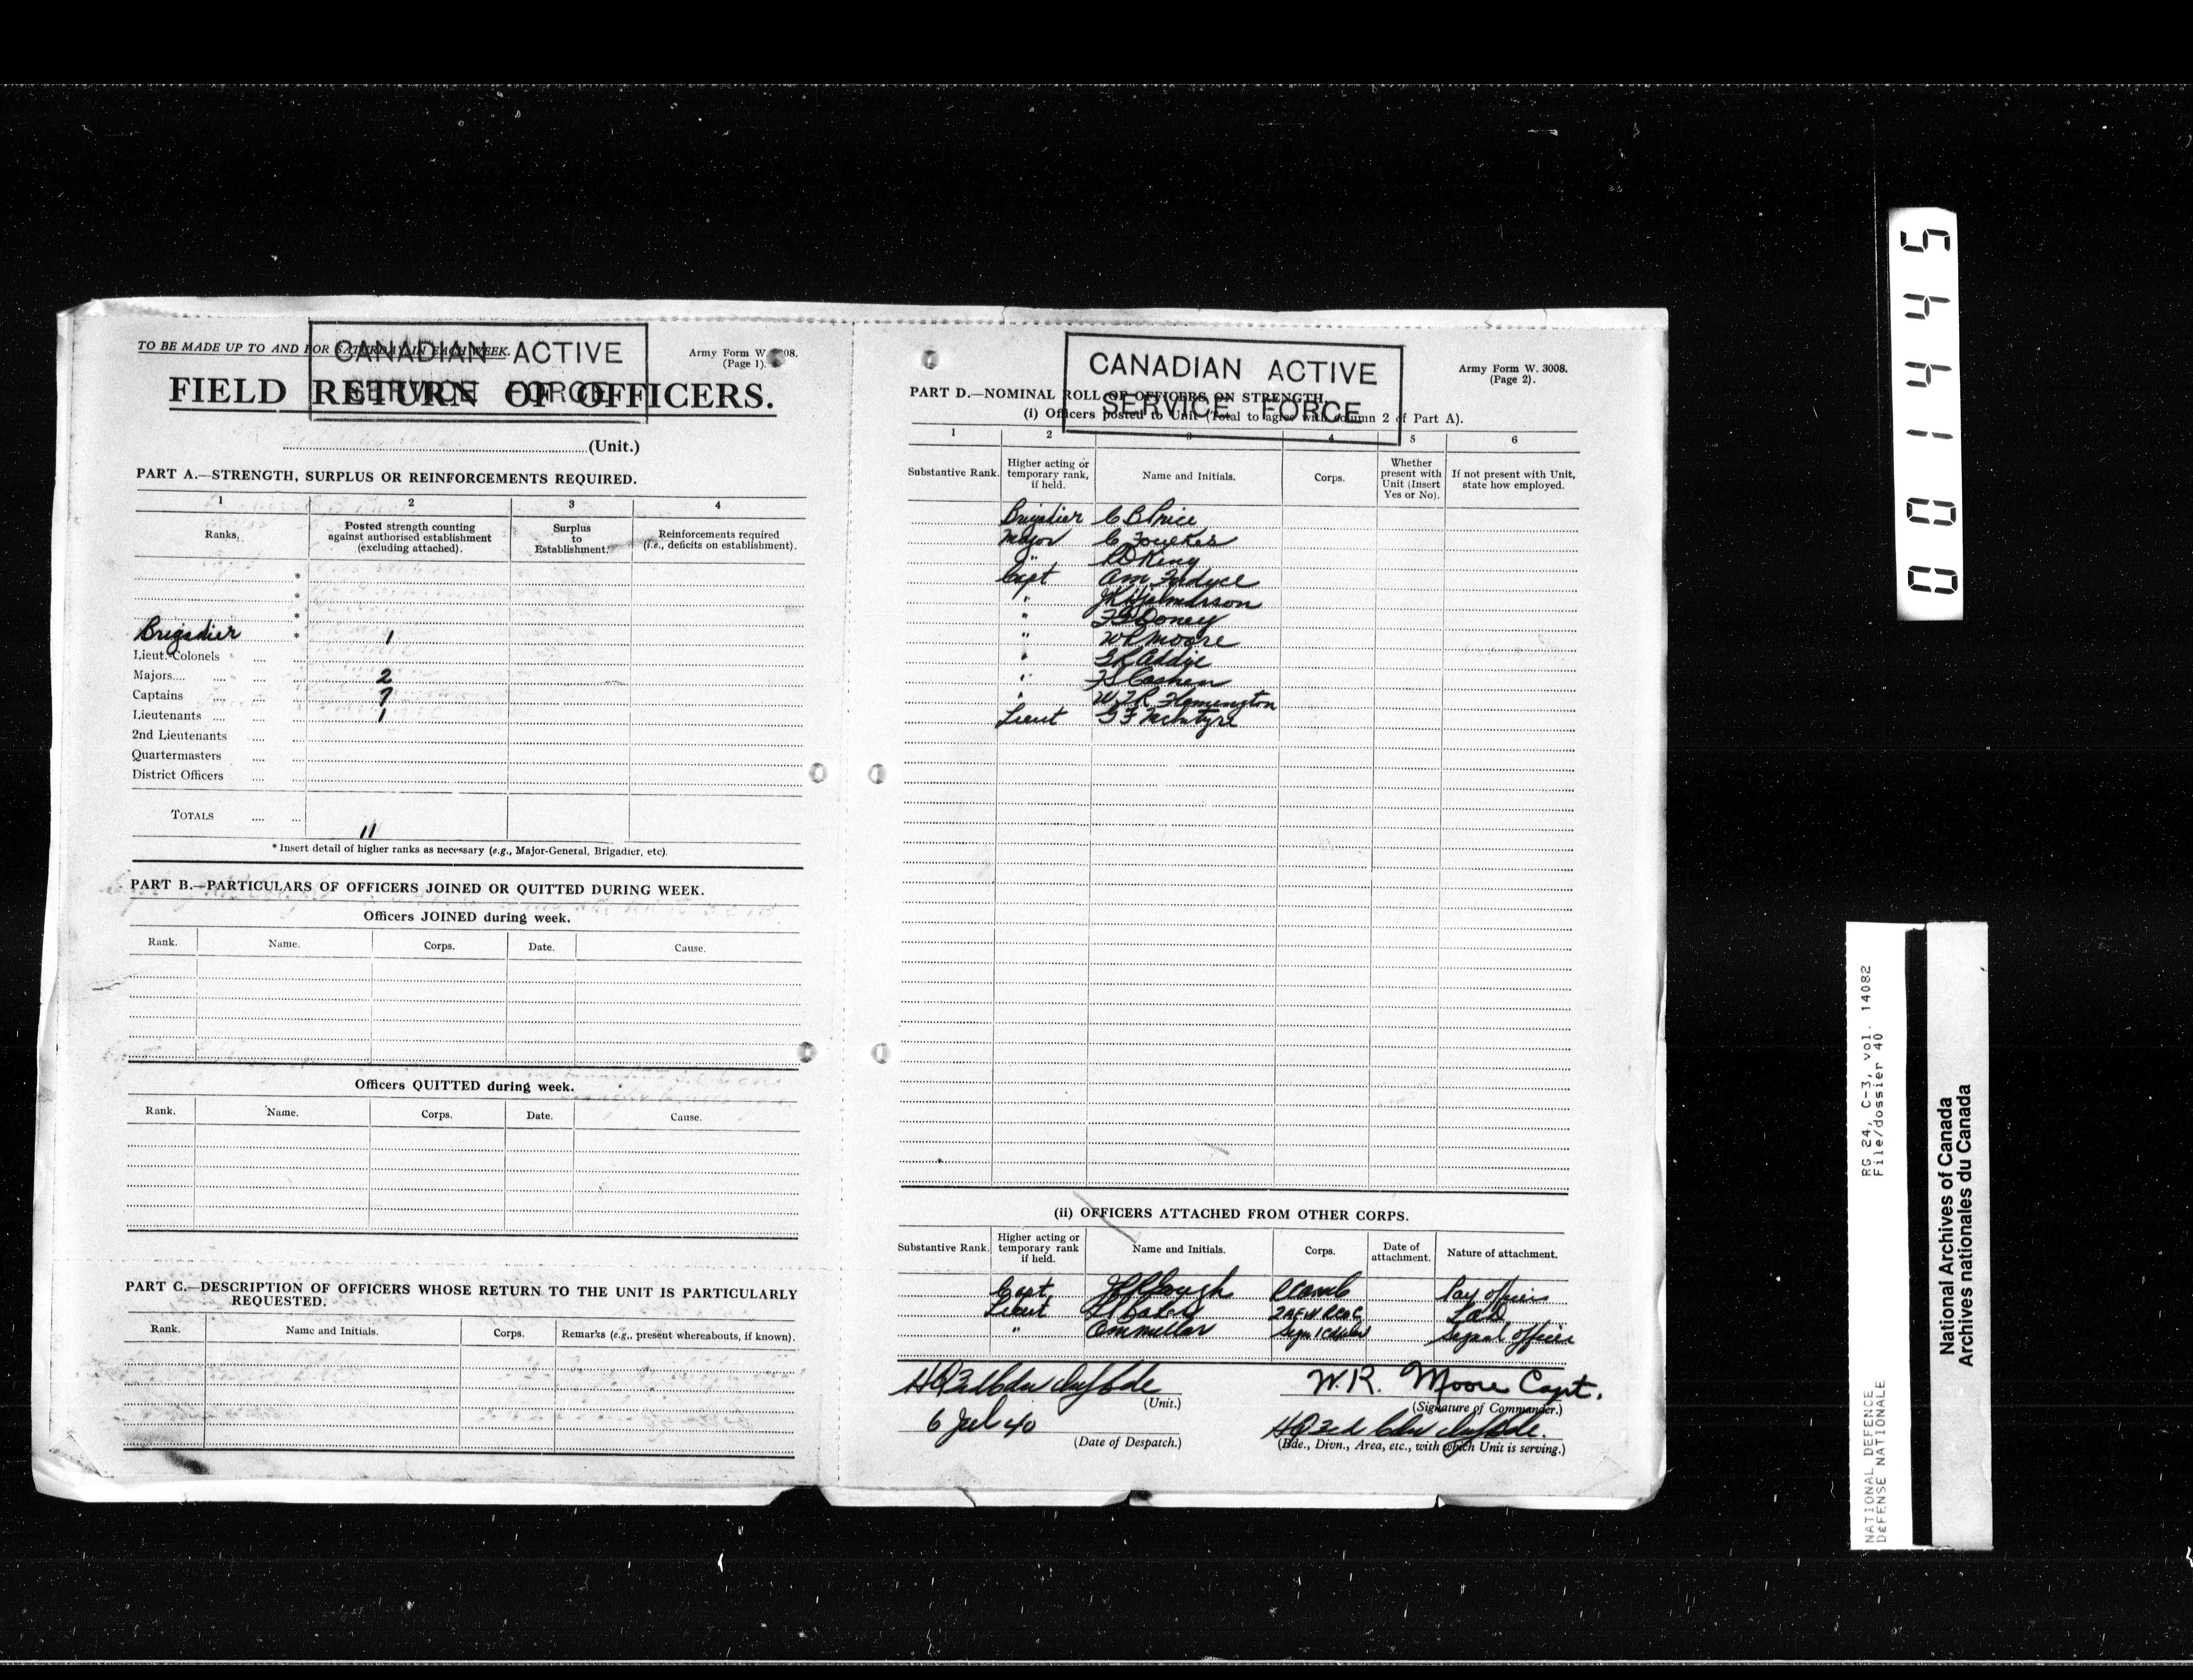 TO BE MADE UP TO AND FOR SATURDAY IN EACH WEEK.
CANADIAN ACTIVE
SERVICE FORCE
Army Form W. 3008.
(Page 1).
FIELD RETURN OF OFFICERS.
(Unit.)
PART A.—STRENGTH, SURPLUS OR REINFORCEMENTS REQUIRED.
1 2 3 4
Ranks. Posted strength counting against authorised establishment (excluding attached). Surplus to Establishment. Reinforcements required (i.e., deficits on establishment).
*
*
*
Brigadier * 1
Lieut.-Colonels
Majors 2
Captains 7
Lieutenants 1
2nd Lieutenants
Quartermasters
District Officers
TOTALS 11
* Insert detail of higher ranks as necessary (e.g., Major-General, Brigadier, etc).
PART B.—PARTICULARS OF OFFICERS JOINED OR QUITTED DURING WEEK.
Officers JOINED during week.
Rank. Name. Corps. Date. Cause.
Officers QUITTED during week.
Rank. Name. Corps. Date. Cause.
PART C.—DESCRIPTION OF OFFICERS WHOSE RETURN TO THE UNIT IS PARTICULARLY
REQUESTED.
Rank. Name and Initials. Corps. Remarks (e.g., present whereabouts, if known).
CANADIAN ACTIVE
SERVICE FORCE
Army Form W. 3008.
(Page 2).
PART D.—NOMINAL ROLL OF OFFICERS ON STRENGTH.
(i) Officers posted to Unit (Total to agree with column 2 of Part A).
1 2 3 4 5 6
Substantive Rank. Higher acting or temporary rank, if held. Name and Initials. Corps. Whether present with Unit (Insert Yes or No). If not present with Unit, state how employed.
Brigadier C B Price
Major C Foulkes
" R D King
Capt A M Fordyce
" J K Hjalmarson
" Doney
" W R Moore
" G R Addie
" Cashen
" W T R Flemington
Lieut G F McIntyre
(ii) OFFICERS ATTACHED FROM OTHER CORPS.
Substantive Rank. Higher acting or temporary rank if held. Name and Initials. Corps. Date of attachment. Nature of attachment.
Capt Gough Pay officer
Lieut Baker L A D
" Millar Signal officer
HQ 3rd Cdn Inf Bde
(Unit.)
W.R. Moore Capt.
(Signature of Commander.)
6 Jul 40
(Date of Despatch.)
Cdn Inf Bde.
(Bde., Divn., Area, etc., with which Unit is serving.)
001445
RG 24, C-3, vol. 14082
File/dossier 40
NATIONAL DEFENCE
DÉFENSE NATIONALE
National Archives of Canada
Archives nationales du Canada